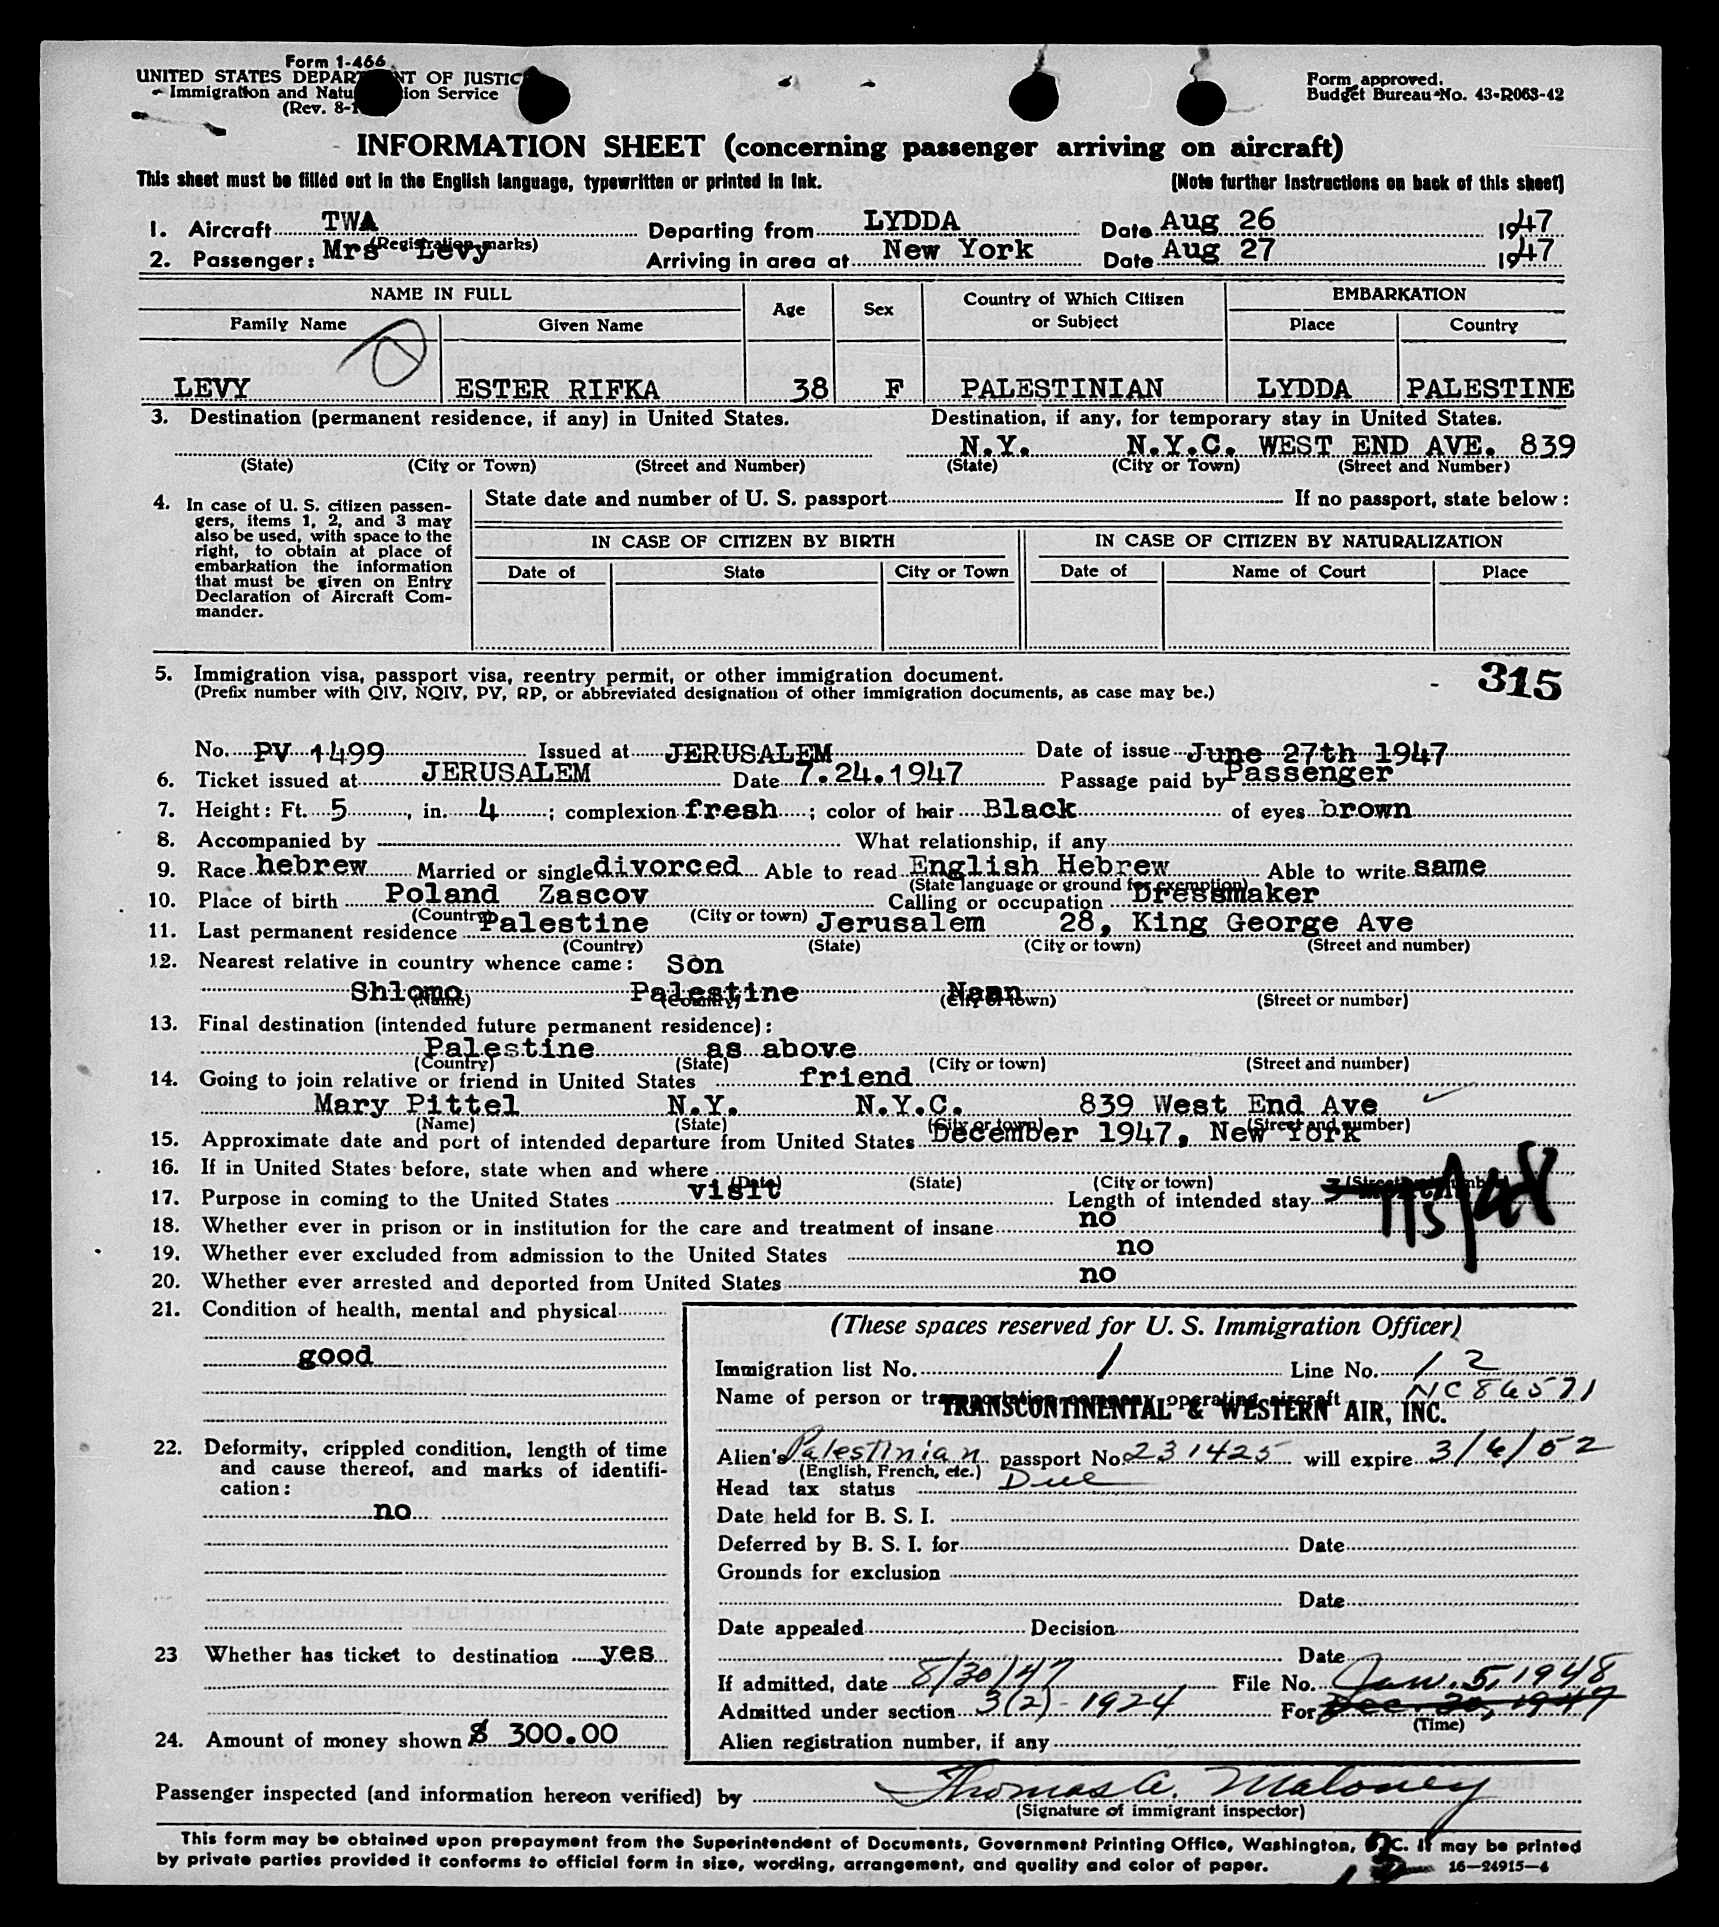 Form 1-466
UNITED STATES DEPARTMENT OF JUSTICE
Immigration and Naturalization Service
(Rev. 8-1
Form approved.
Budget Bureau No. 43-R063-42
INFORMATION SHEET (concerning passenger arriving on aircraft)
This sheet must be filled out in the English language, typewritten or printed in ink. (Note further instructions on back of this sheet)
1. Aircraft TWA Departing from LYDDA Date Aug 26 1947
(Registration marks)
2. Passenger: Mrs Levy Arriving in area at New York Date Aug 27 1947
NAME IN FULL Age Sex Country of Which Citizen or Subject EMBARKATION
Family Name Given Name Place Country
LEVY ESTER RIFKA 38 F PALESTINIAN LYDDA PALESTINE
3. Destination (permanent residence, if any) in United States. Destination, if any, for temporary stay in United States.
N.Y. N.Y.C. WEST END AVE. 839
(State) (City or Town) (Street and Number) (State) (City or Town) (Street and Number)
4. In case of U. S. citizen passen-
gers, items 1, 2, and 3 may
also be used, with space to the
right, to obtain at place of
embarkation the information
that must be given on Entry
Declaration of Aircraft Com-
mander.
State date and number of U. S. passport If no passport, state below:
IN CASE OF CITIZEN BY BIRTH IN CASE OF CITIZEN BY NATURALIZATION
Date of State City or Town Date of Name of Court Place
5. Immigration visa, passport visa, reentry permit, or other immigration document.
(Prefix number with QIV, NQIV, PV, RP, or abbreviated designation of other immigration documents, as case may be.)
- 315
No. PV 1499 Issued at JERUSALEM Date of issue June 27th 1947
6. Ticket issued at JERUSALEM Date 7.24.1947 Passage paid by Passenger
7. Height: Ft. 5, in. 4; complexion fresh; color of hair Black of eyes brown
8. Accompanied by What relationship, if any
9. Race hebrew Married or single divorced Able to read English Hebrew Able to write same
(State language or ground for exemption)
10. Place of birth Poland Zascov Calling or occupation Dressmaker
(Country) (City or town)
11. Last permanent residence Palestine Jerusalem 28, King George Ave
(Country) (State) (City or town) (Street and number)
12. Nearest relative in country whence came: Son
Shlomo Palestine Naan
(Name) (Country) (City or town) (Street or number)
13. Final destination (intended future permanent residence):
Palestine as above
(Country) (State) (City or town) (Street and number)
14. Going to join relative or friend in United States friend
Mary Pittel N.Y. N.Y.C. 839 West End Ave
(Name) (State) (City or town) (Street and number)
15. Approximate date and port of intended departure from United States December 1947, New York
16. If in United States before, state when and where
(Date) (State) (City or town) (Street and number)
17. Purpose in coming to the United States visit Length of intended stay 1/5/48
18. Whether ever in prison or in institution for the care and treatment of insane no
19. Whether ever excluded from admission to the United States no
20. Whether ever arrested and deported from United States no
21. Condition of health, mental and physical
good
22. Deformity, crippled condition, length of time
and cause thereof, and marks of identifi-
cation:
no
23 Whether has ticket to destination yes
24. Amount of money shown $ 300.00
(These spaces reserved for U. S. Immigration Officer)
Immigration list No. 1 Line No. 12
Name of person or transportation company operating aircraft NC86571
TRANSCONTINENTAL & WESTERN AIR, INC.
Alien's Palestinian passport No 231425 will expire 3/6/52
(English, French, etc.)
Head tax status Due
Date held for B. S. I.
Deferred by B. S. I. for Date
Grounds for exclusion
Date
Date appealed Decision
Date
If admitted, date 8/30/47 File No. Jan. 5, 1948
Admitted under section 3(2) - 1924 For Dec. 20, 1947
(Time)
Alien registration number, if any
Passenger inspected (and information hereon verified) by Thomas A. Maloney
(Signature of immigrant inspector)
This form may be obtained upon prepayment from the Superintendent of Documents, Government Printing Office, Washington, D. C. It may be printed
by private parties provided it conforms to official form in size, wording, arrangement, and quality and color of paper. 16—24915-4